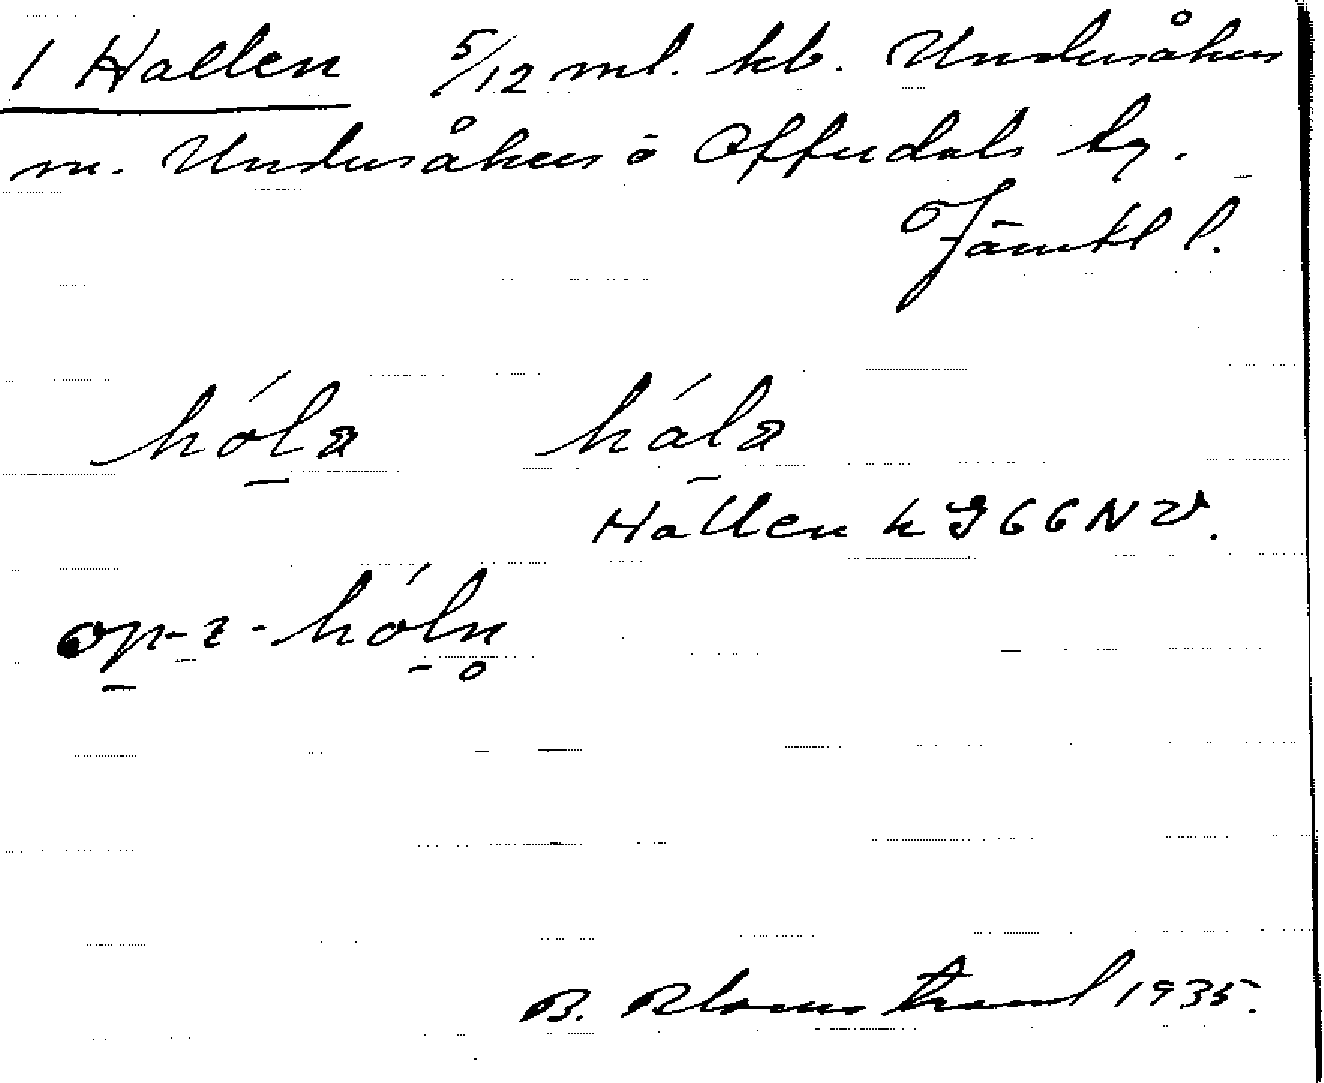 1 Hallen 5/12 ml. kb. Undersåkers
m. Undersåkers o Offerdals tg.
Jämtl l.
hóla hála
Hallen k J 66 NV.
op-ı-hóln̥
B. Blomstrand 1935.